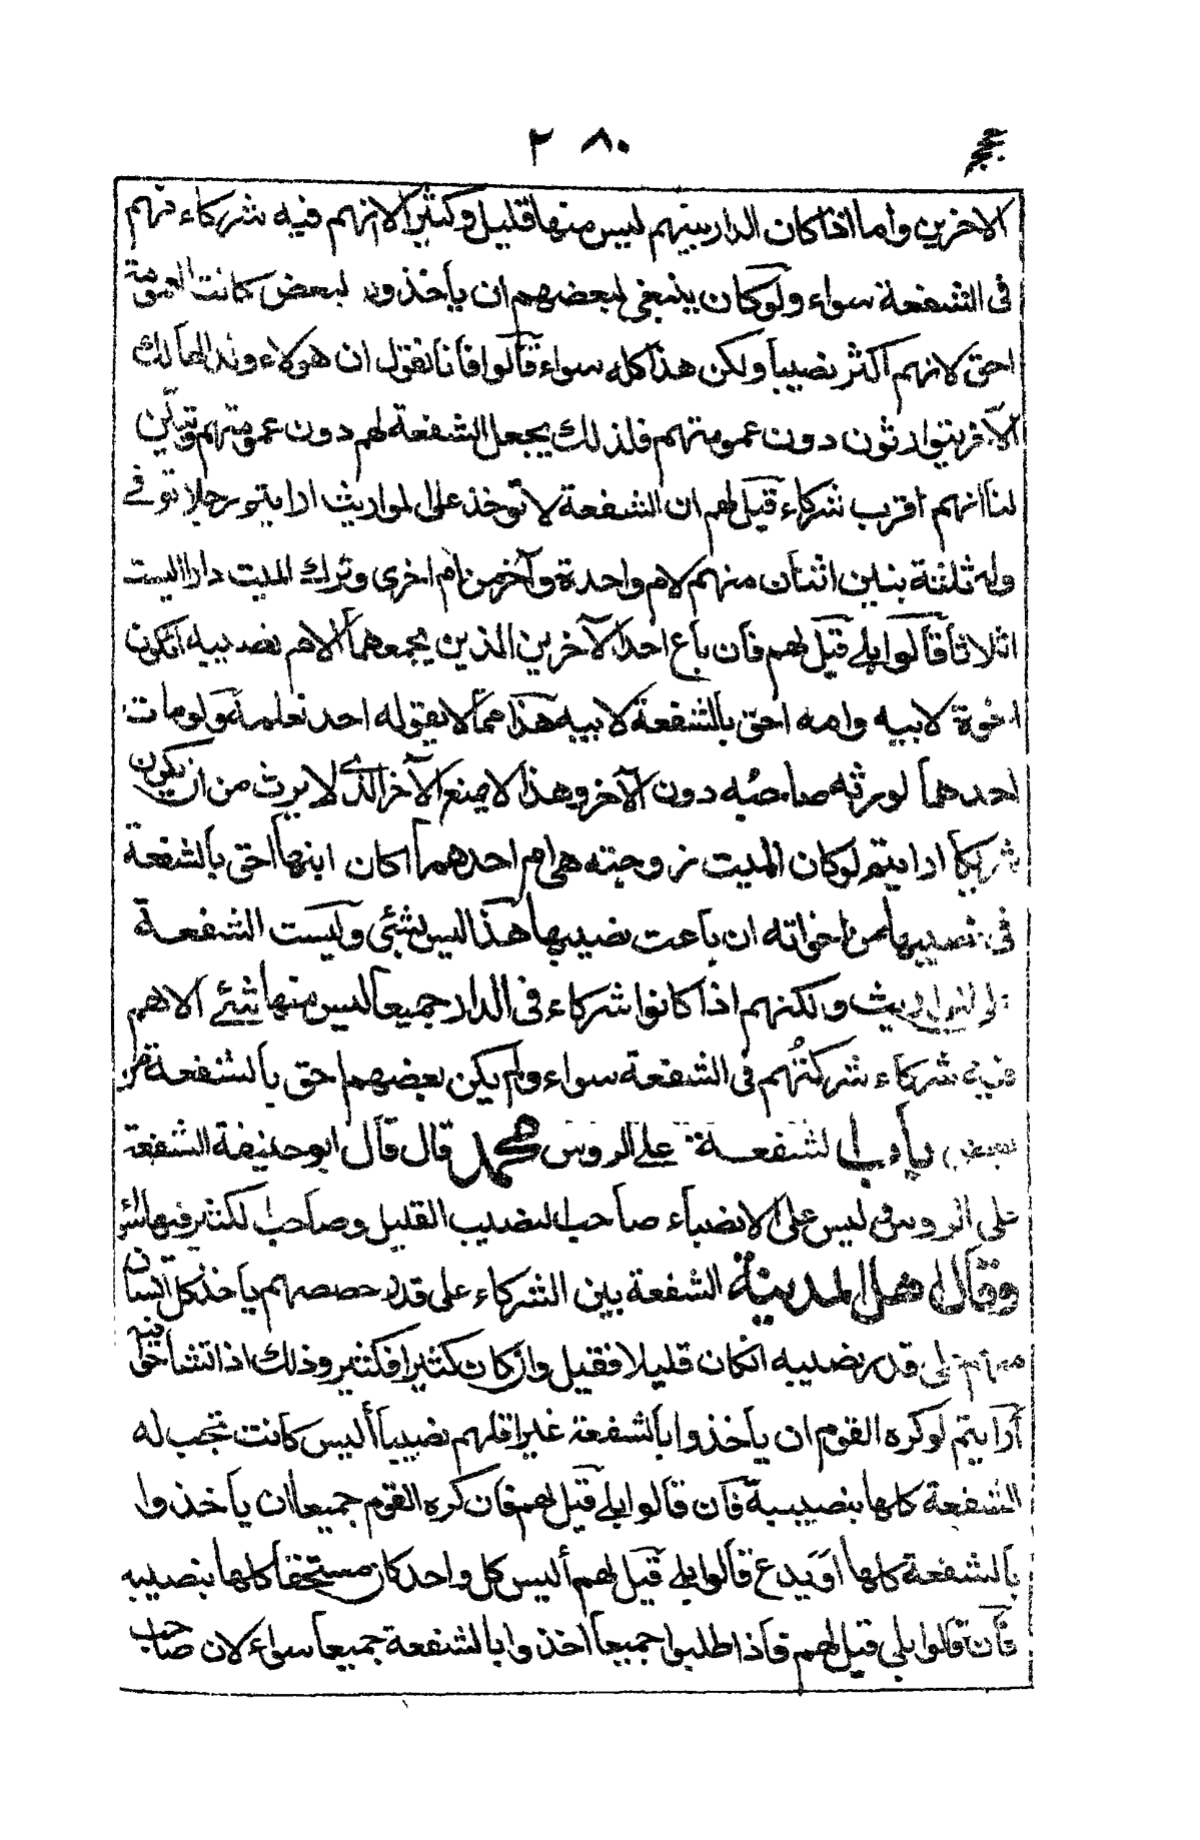 ٢٨٠
الاخرين واما اذا كان الدار بينهم ليس منها قليل وكثير الا انهم فيه شركاء فهم
فى الشفعة سواء ولو كان ينبغى لبعضهم ان يأخذ دون لبعض كانت العمومة
احق لانهم اكثر نصيبا ولكن هذا كله سواء قالوا فانا نقول ان هولاء ولد الهالك
الآخر يتوارثون دون عمومتهم فلذلك يجعل الشفعة لهم دون عمومتهم وتبين
لنا انهم اقرب شركاء قيل لهم ان الشفعة لا توخذ على المواريث ارايتم رجلا توفى
وله ثلثة بنين اثنان منهم لام واحدة وآخر من ام اخرى وترك الميت دارا اليست
اثلاثا قالوا بلى قيل لهم فان باع احد الآخرين الذين يجمعهما الام نصيبه ايكون
اخوه لابيه وامه احق بالشفعة لابيه هذا مما لا يقوله احد نعلمه ولو مات
احدهما لورثه صاحبه دون الآخر وهذا لا يمنع الآخر الذى لا يرث من ان يكون
شريكا ارايتم لو كان الميت زوجته هى ام احدهم اكان ابنها احق بالشفعة
فى نصيبها من اخواته ان باعت نصيبها هذا ليس بشئى وليست الشفعة
على المواريث ولكنهم اذا كانوا شركاء فى الدار جميعا ليس منها شئے الا هم
فيه شركاء شركتهم فى الشفعة سواء ولم يكن بعضهم احق بالشفعة من
بعض باب الشفعة على الروس محمد قال قال ابو حنيفة الشفعة
على الروس ليس على الانصباء صاحب النصيب القليل وصاحب الكثير فيها
وقال اهل المدينة الشفعة بين الشركاء على قدر حصصهم يأخذ كل انسان
منهم على قدر نصيبه ان كان قليلا فقليل وان كان كثيرا فكثير وذلك اذا تشاحوا فيه
أرايتم لو كره القوم ان يأخذوا بالشفعة غير اقلهم نصيبا أليس كانت تجب له
الشفعة كلها بنصيبه فان قالوا بلى قيل لهم فان كره القوم جميعا ان يأخذوا
بالشفعة كلها او يدع قالوا بلى قيل لهم أليس كل واحد كان مستحقا كلها بنصيبه
فان قالوا بلى قيل لهم فاذا طلبوا جميعا اخذوا بالشفعة جميعا سواء لان صاحب